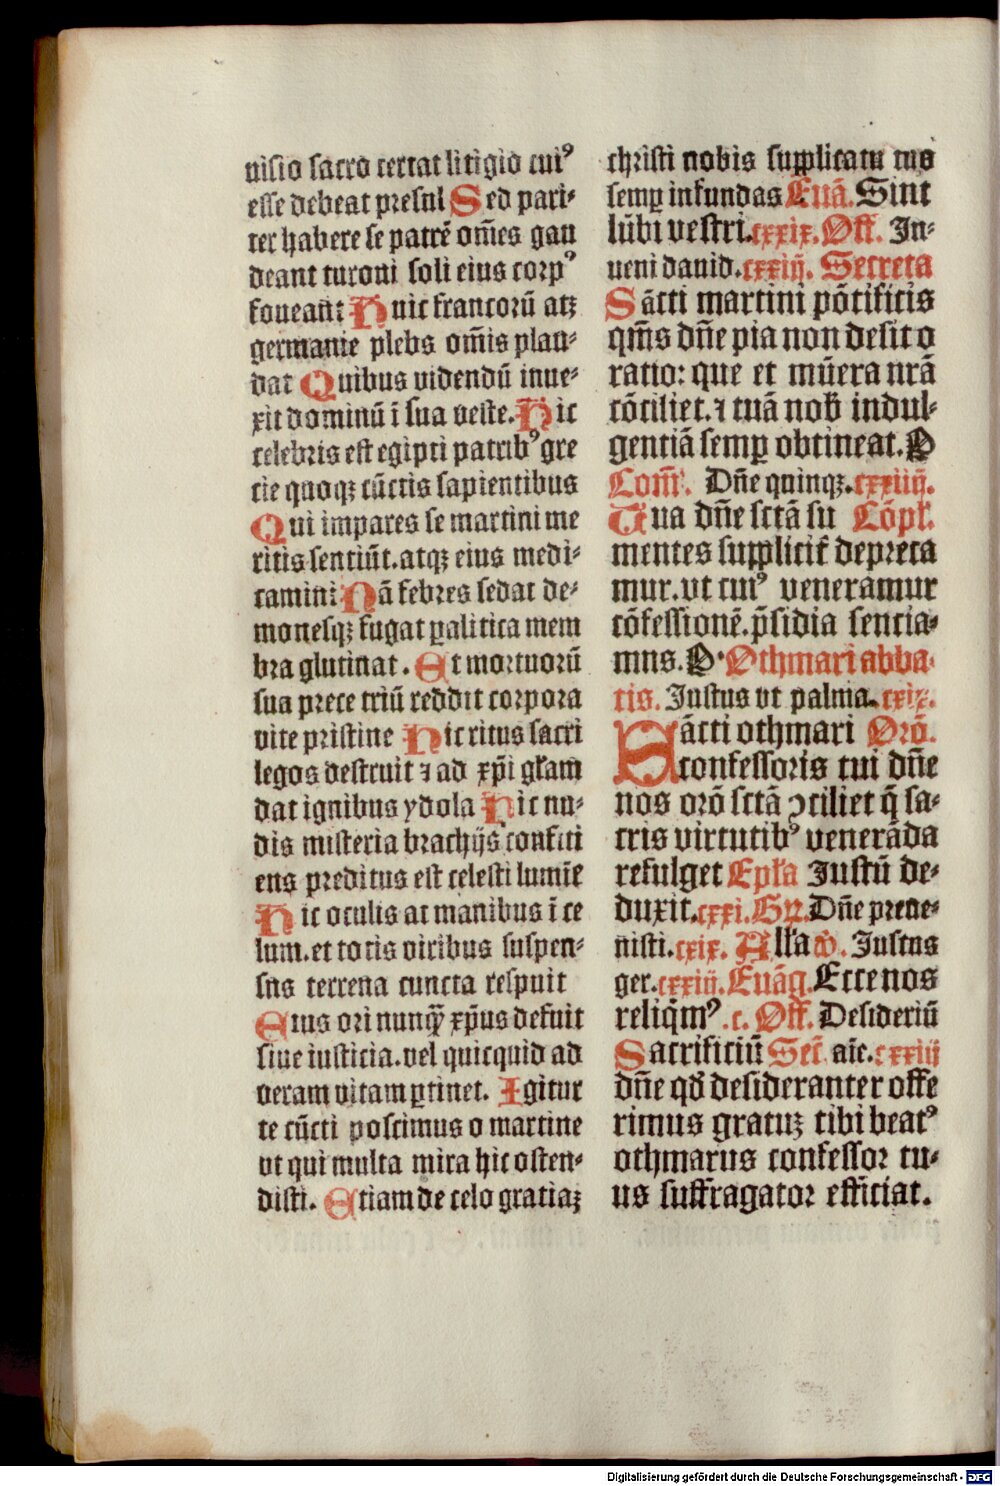 nisio sacro certat litigio cuiꝰ
esse debeat presul Sed pari-
ter habere se patrē om̄es gau
deant turoni soli eius corpꝰ
foueant Huic francorū atqꝫ
germanie plebs om̄is plau-
dat Quibus videndū inue-
xit dominū ī sua veste. Hic
celebris est egipti patribꝰ gre
cie quoqꝫ cūctis sapientibus
Qui impares se martini me
ritis sentiūt. atqꝫ eius medi-
camini Nā febres sedat de-
monesqꝫ fugat ꝑalitica mem
bra glutinat. Et mortuorū
sua prece triū reddit corpora
vite pristine Hic ritus sacri
legos destruit ⁊ ad xp̄i głam
dat ignibus ydola Hic nu-
dis misteria brachijs confici
ens preditus est celesti lumīe
Hic oculis ac manibus ī ce
lum. et totis viribus suspen-
sus terrena cuncta respuit
Eius ori nunqꝫ̄ xp̄us defuit
siue iusticia. vel quicquid ad
veram vitam ꝑtinet. Igitur
te cūcti poscimus o martine
vt qui multa mira hic osten-
disti. Etiam de celo gratiaꝫ
christi nobis supplicatu tuo
semꝑ infundas Euā. Sint
lūbi vestri. cxxix. Off. In-
ueni dauid. cxxiij. Secreta
Sācti martini pōtificis
qm̄s dn̄e pia non desit o
ratio: que et mūera nrā
cōciliet. ⁊ tuā nob̄ indul-
gentiā semꝑ obtineat. P
Com̄. Dn̄e quinqꝫ. cxxiiij.
Tua dn̄e sctā su Cōpł.
mentes suppliciť depreca
mur. vt cuiꝰ veneramur
cōfessionē. p̄sidia sencia-
mus. P. Othmari abba-
tis. Justus vt palma. cxix.
Sācti othmari Orō.
confessoris tui dn̄e
nos orō sctā ↄciliet q̄ sa-
cris virtutibꝰ venerāda
refulget Epła Justū de-
duxit. cxxi. Gꝛ. Dn̄e preue-
nisti. cxix. Ałła v̄. Justus
ger. cxxiij. Euāg. Ecce nos
reliqm̄ꝰ. c. Off. Desideriū
Sacrificiū Sec̄. aīe. cxxiij
dn̄e qd̄ desideranter offe
rimus gratuꝫ tibi beatꝰ
othmarus confessor tu-
us suffragator efficiat.
Digitalisierung gefördert durch die Deutsche Forschungsgemeinschaft - DFG